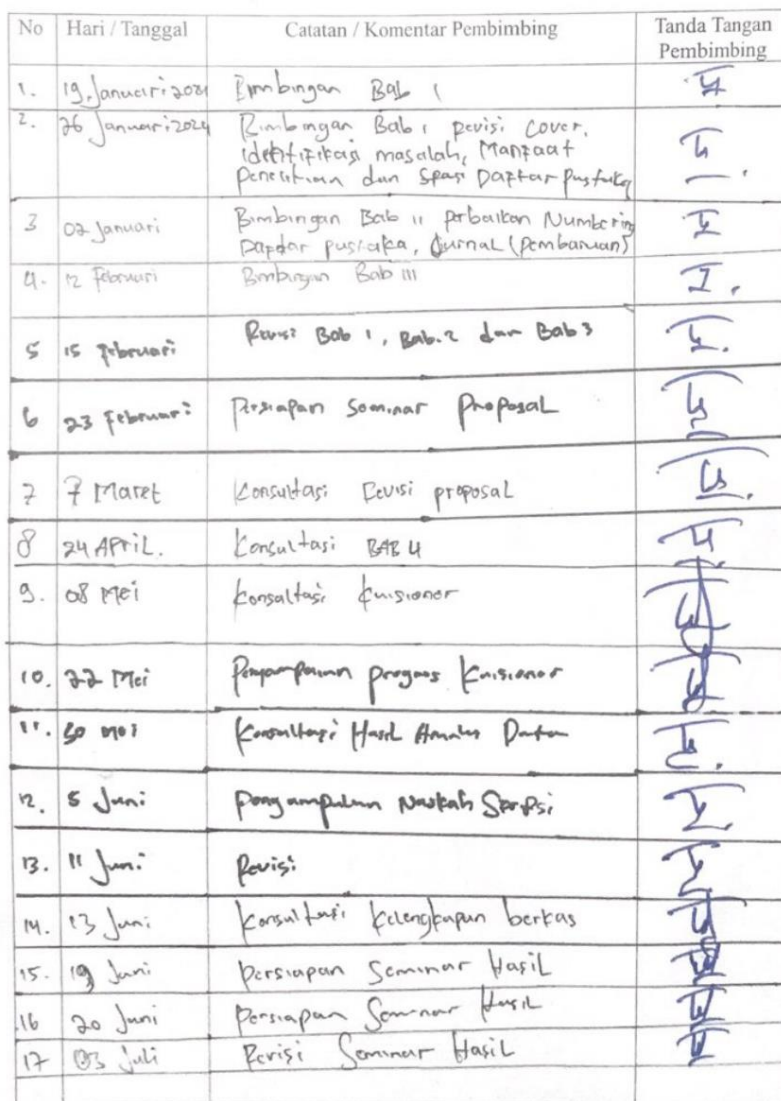 No Hari / Tanggal Catatan / Komentar Pembimbing Tanda Tangan
Pembimbing
1. 19 Januari 2024 Bimbingan Bab 1
2. 26 Januari 2024 Bimbingan Bab 1 revisi cover,
identifikasi masalah, Manfaat
penelitian dan spasi Daftar pustaka
3 02 Januari Bimbingan Bab II perbaikan Numbering
Daftar pustaka, Jurnal (pembaruan)
4. 12 Februari Bimbingan Bab III
5 15 Februari Revisi Bab 1, Bab.2 dan Bab3
6 23 Februari Persiapan Seminar Proposal
7 7 Maret Konsultasi Revisi proposal
8 24 APRIL. Konsultasi BAB 4
9. 08 Mei Konsultasi kuisioner
10. 22 Mei Penyampaian progres kuisioner
11. 30 Mei Konsultasi Hasil Analisis Data
12. 5 Juni Pengumpulan Naskah Skripsi
13. 11 Juni Revisi
14. 13 Juni Konsultasi kelengkapan berkas
15. 19 Juni Persiapan Seminar Hasil
16 20 Juni Persiapan Seminar Hasil
17 03 Juli Revisi Seminar Hasil